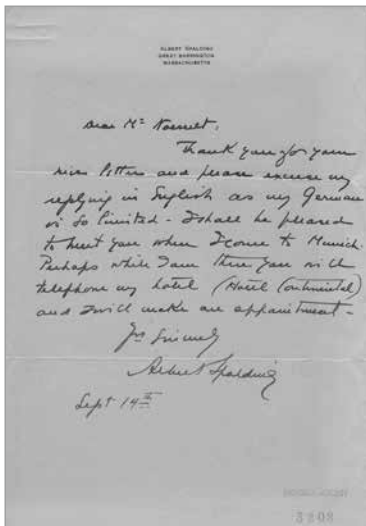 ALBERT SPALDING
GREAT BARRINGTON
MASSACHUSETTS
Dear Mr
Thank you for your
nice letter and please excuse my
replying in English as my German
is so limited - I shall be pleased
to meet you when I come to Munich.
Perhaps while I am there you will
telephone my hotel (Hotel Continental)
and I will make an appointment -
Yrs Sincerely
Albert Spalding
Sept 14th